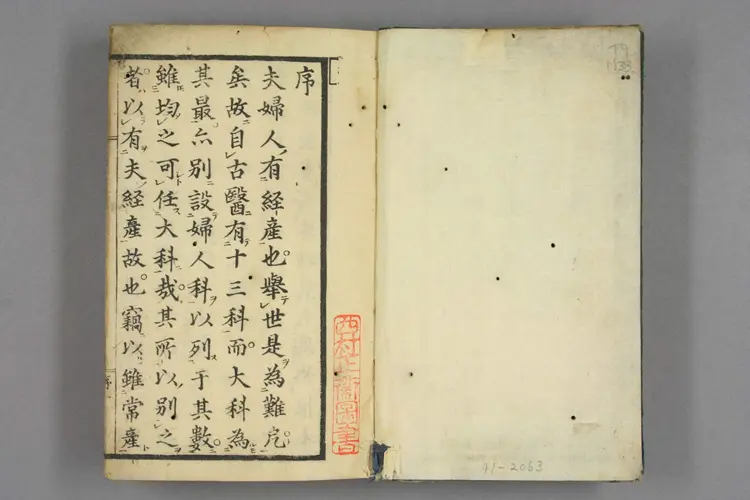 序
夫婦人有経産也舉世是為難危
矣故自古醫有十三科而大科為
其最亦別設婦人科以列于其數
雖均之可任大科哉其所以別之
者以有夫経産故也竊以雖常産
序
圖書
41-2063